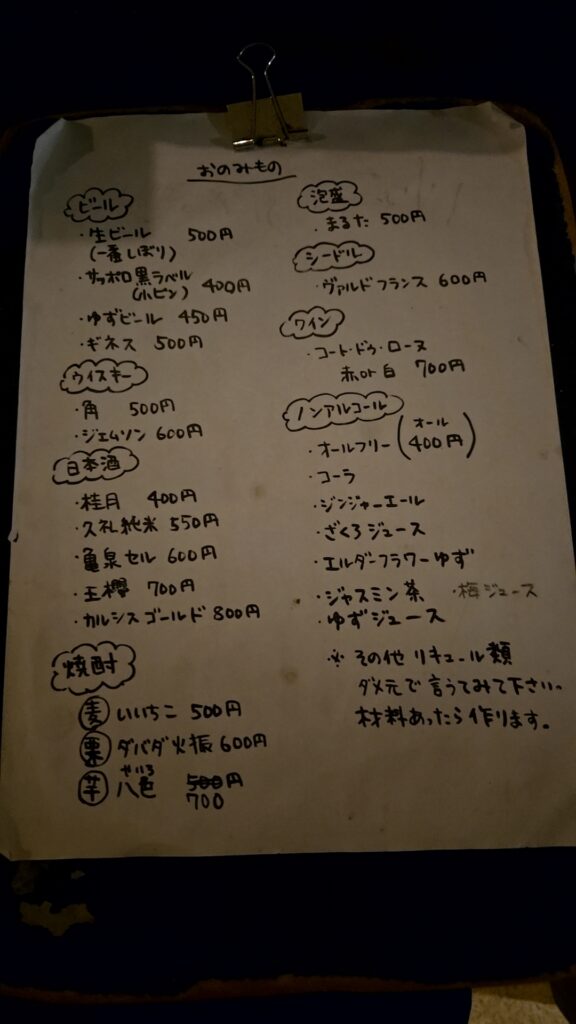 おのみもの
ビール
・生ビール 500円
(一番しぼり)
・サッポロ黒ラベル
(小ビン) 400円
・ゆずビール 450円
・ギネス 500円
ウイスキー
・角 500円
・ジェムソン 600円
日本酒
・桂月 400円
・久礼純米 550円
・亀泉セル 600円
・王櫻 700円
・カルシスゴールド 800円
焼酎
麦 いいちこ 500円
栗 ダバダ火振 600円
やいろ
芋 八色 500円
700
泡盛
・まるた 500円
シードル
・ヴァルドフランス 600円
ワイン
・コート・ドゥ・ローヌ
赤or白 700円
ノンアルコール
(オール
400円)
・オールフリー
・コーラ
・ジンジャーエール
・ざくろジュース
・エルダーフラワーゆず
・ジャスミン茶 ・梅ジュース
・ゆずジュース
※その他リキュール類
ダメ元で言うてみて下さい。
材料あったら作ります。